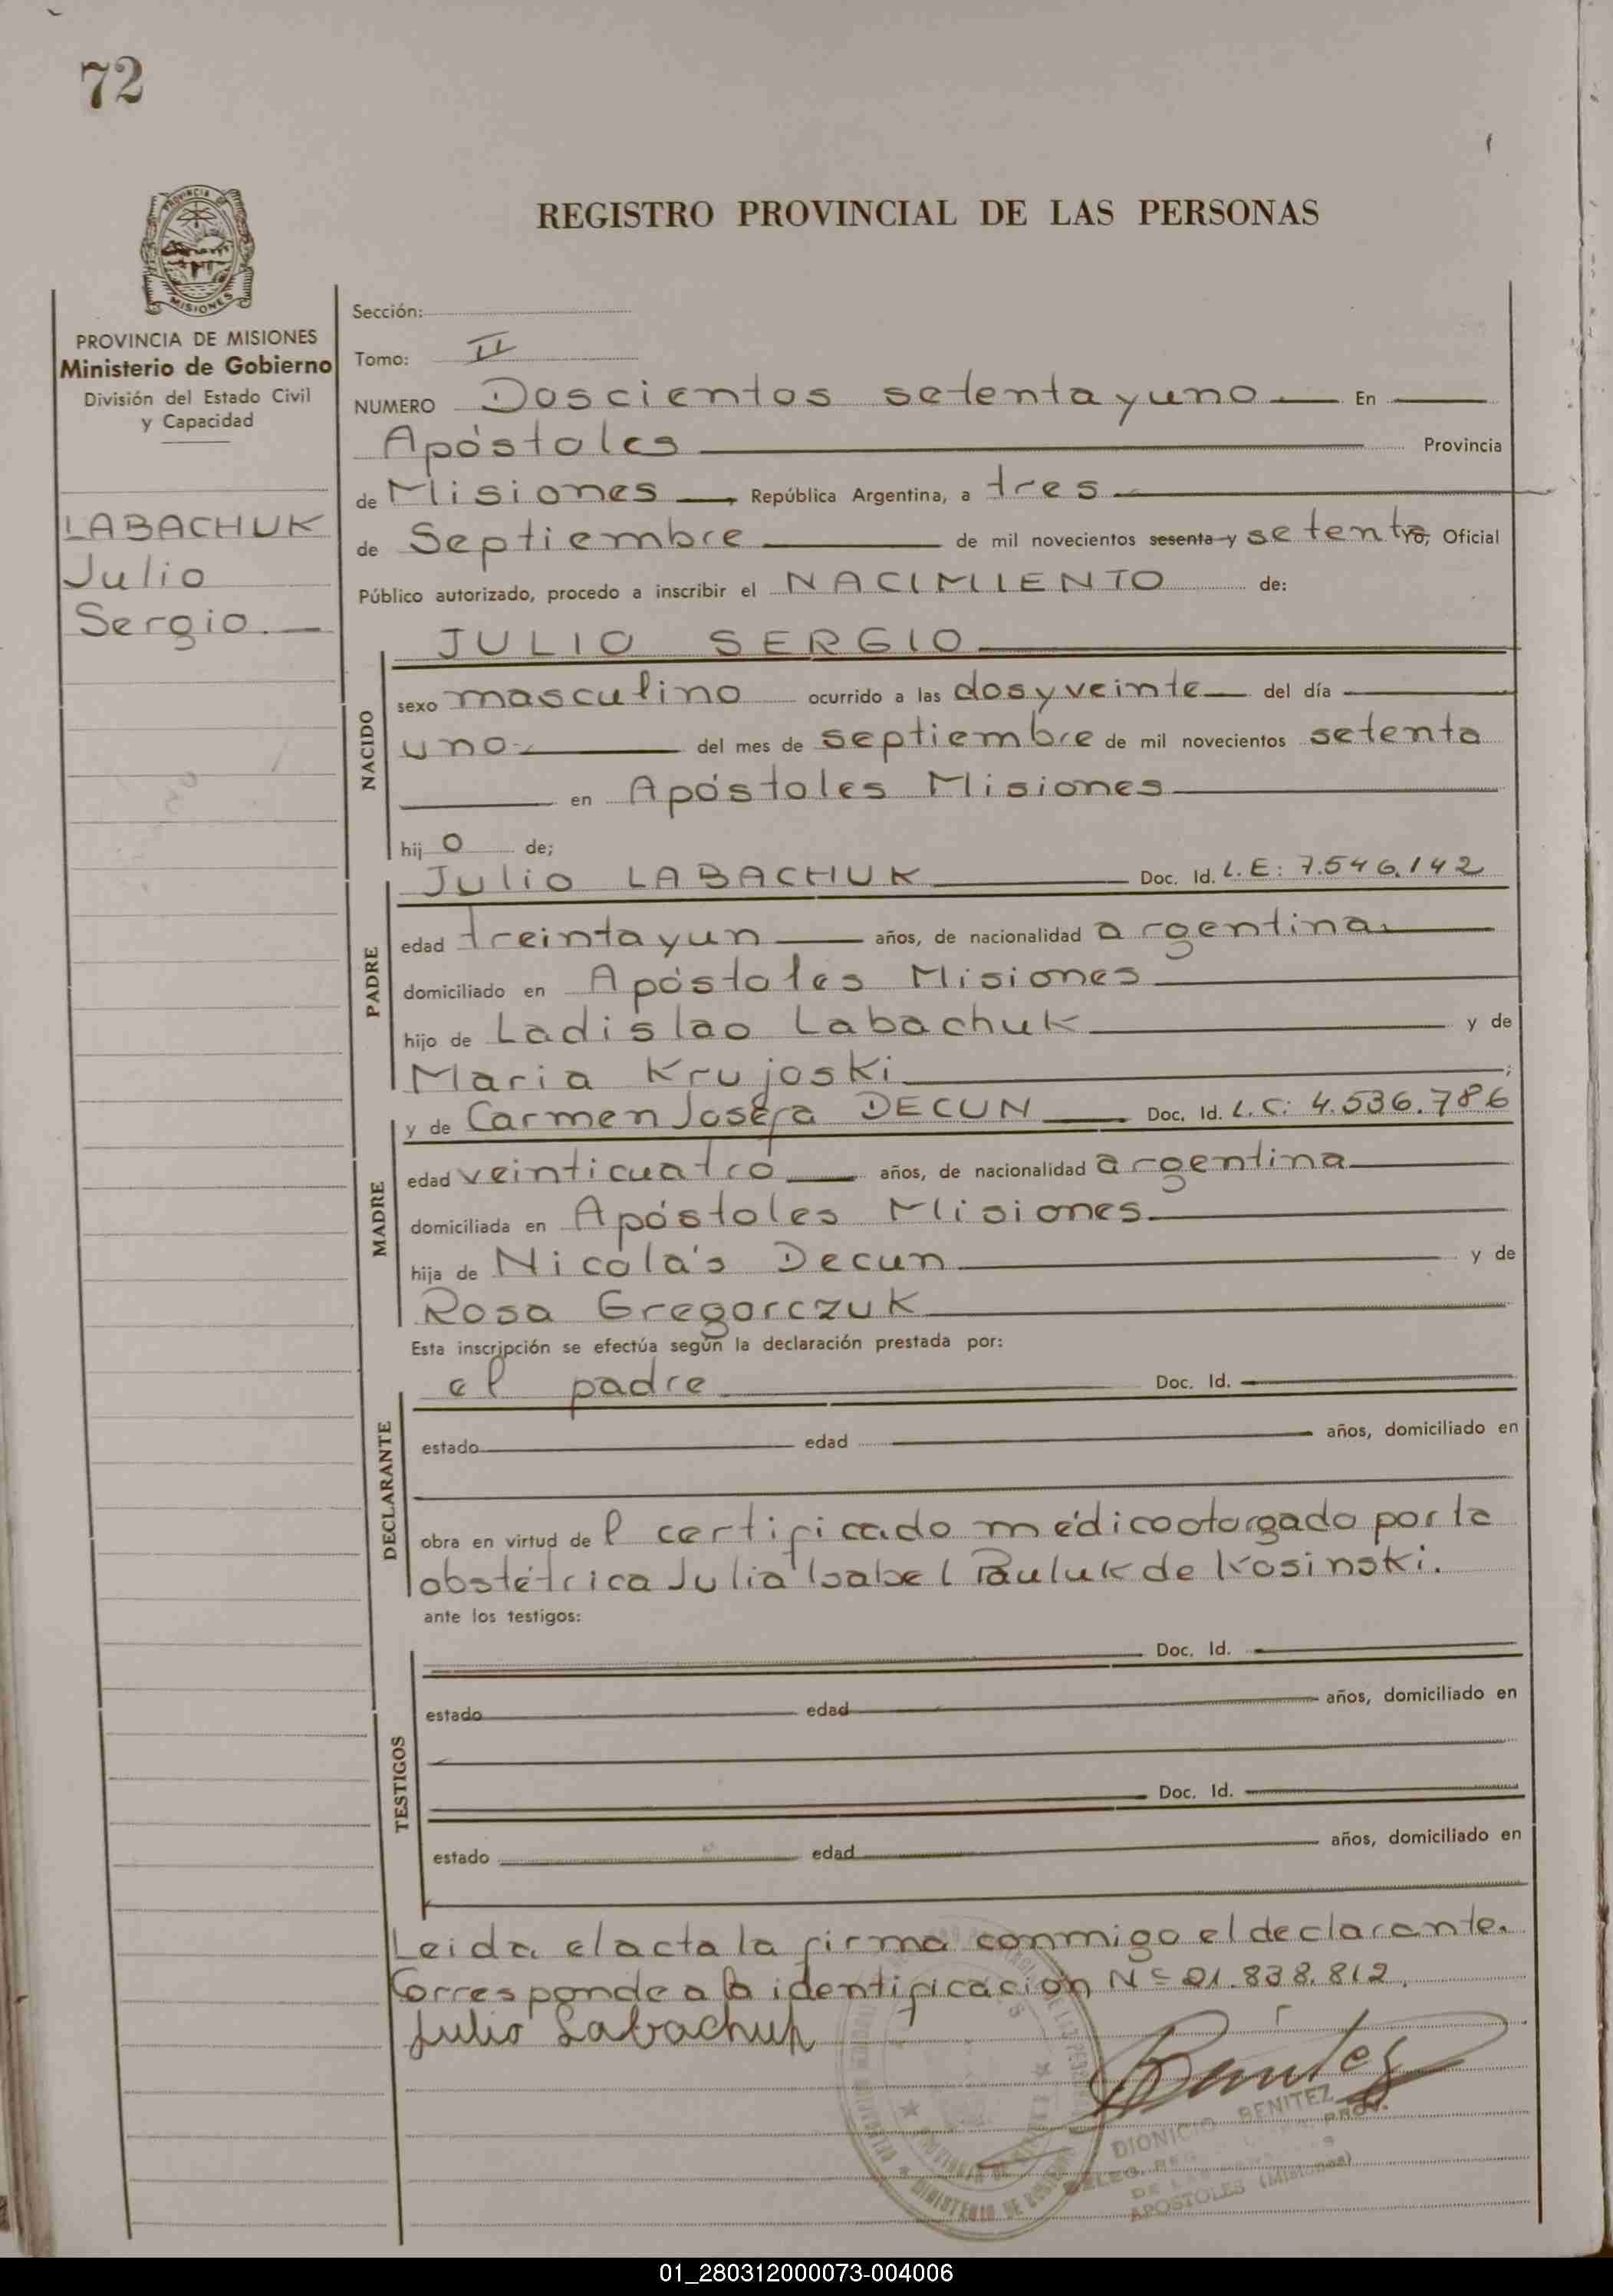 72
REGISTRO PROVINCIAL DE LAS PERSONAS
PROVINCIA DE MISIONES
Ministerio de Gobierno
División del Estado Civil
y Capacidad
LABACHUK
Julio
Sergio.
Sección:
Tomo: II
NUMERO Doscientos setenta y uno En
Apóstoles Provincia
de Misiones, República Argentina, a tres
de Septiembre de mil novecientos sesenta y setenta yo, Oficial
Público autorizado, procedo a inscribir el NACIMIENTO de:
JULIO SERGIO
NACIDO
sexo masculino ocurrido a las dos y veinte del día
uno del mes de septiembre de mil novecientos setenta
en Apóstoles Misiones
hij o de;
PADRE
Julio LABACHUK Doc. Id. L.E: 7.546.142
edad treinta y un años, de nacionalidad argentina
domiciliado en Apóstoles Misiones
hijo de Ladislao Labachuk y de
Maria Krujoski;
MADRE
y de Carmen Josefa DECUN Doc. Id. L.C: 4.536.786
edad veinticuatro años, de nacionalidad argentina
domiciliada en Apóstoles Misiones
hija de Nicolás Decun y de
Rosa Gregorczuk
Esta inscripción se efectúa según la declaración prestada por:
DECLARANTE
el padre Doc. Id.
estado edad años, domiciliado en
obra en virtud de l certificado médico otorgado por la
obstétrica Julia Isabel Pauluk de Kosinski.
ante los testigos:
TESTIGOS
Doc. Id.
estado edad años, domiciliado en
Doc. Id.
estado edad años, domiciliado en
Leida el acta la firma conmigo el declarante.
Corresponde a la identificación Nº 21.838.812.
Julio Labachuk
Benitez
DIONICIO BENITEZ
APOSTOLES (Misiones)
01_280312000073-004006